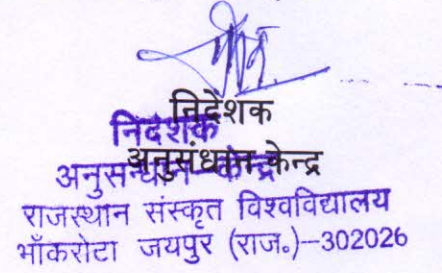 निदेशक
निदेशक
अनुसंधान केन्द्र
अनुसन्धान केन्द्र
राजस्थान संस्कृत विश्वविद्यालय
भाँकरोटा जयपुर (राज॰)–302026